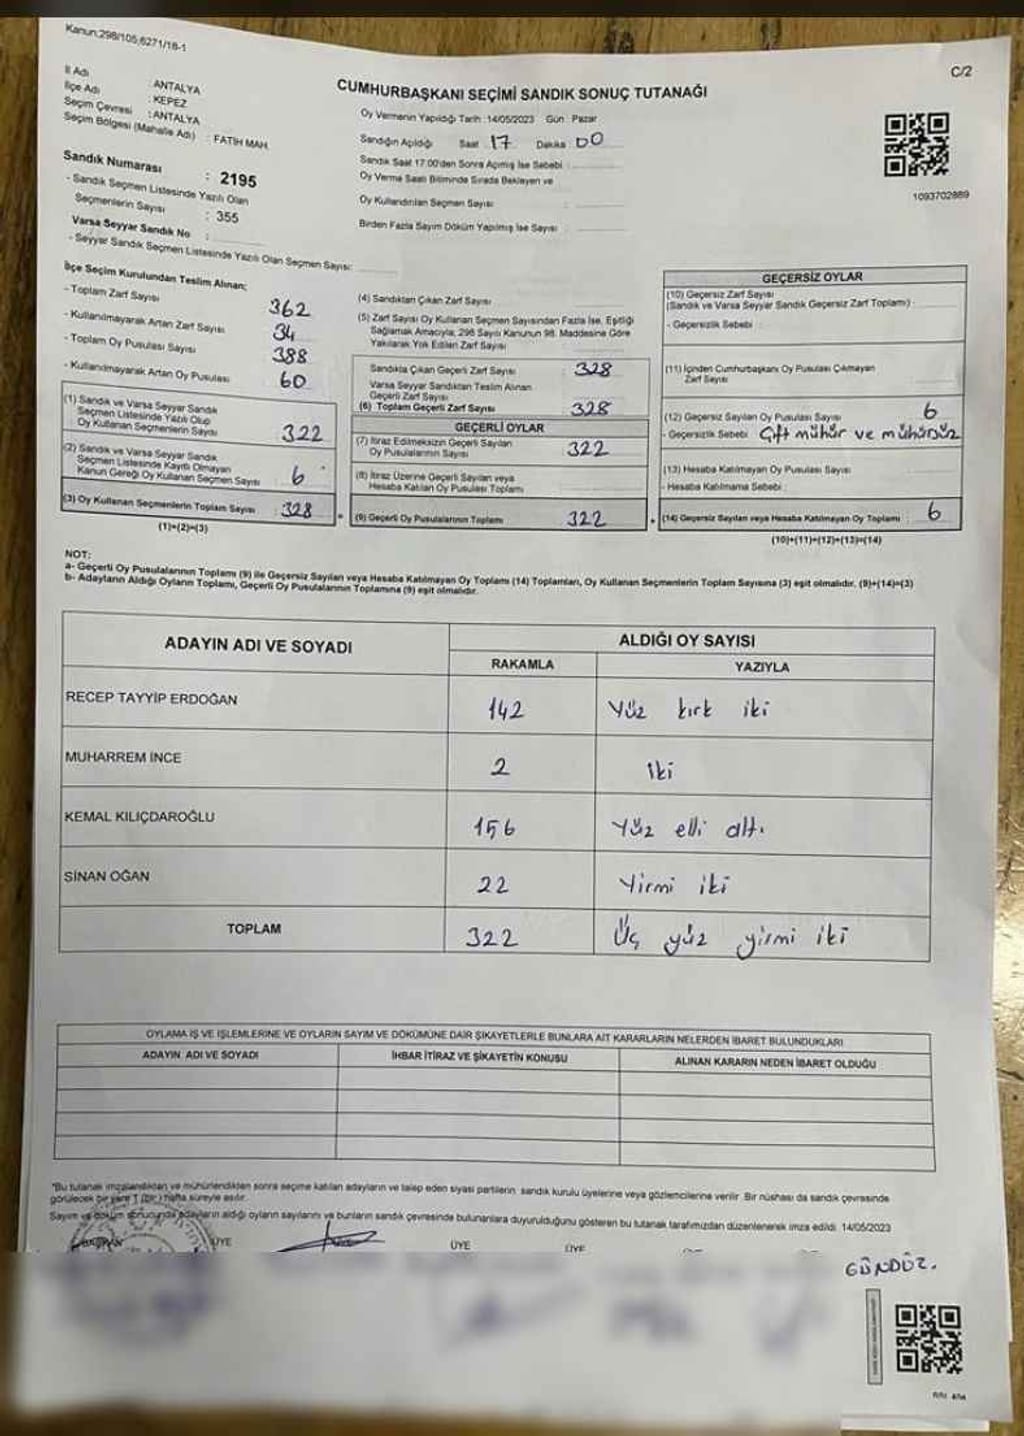 Kanun;298/105;6271/18-1
C/2
İl Adı : ANTALYA
İlçe Adı : KEPEZ
Seçim Çevresi : ANTALYA
Seçim Bölgesi (Mahalle Adı) : FATİH MAH.
Sandık Numarası : 2195
- Sandık Seçmen Listesinde Yazılı Olan
Seçmenlerin Sayısı : 355
Varsa Seyyar Sandık No :
- Seyyar Sandık Seçmen Listesinde Yazılı Olan Seçmen Sayısı:
CUMHURBAŞKANI SEÇİMİ SANDIK SONUÇ TUTANAĞI
Oy Vermenin Yapıldığı Tarih :14/05/2023 Gün : Pazar
Sandığın Açıldığı Saat 17 Dakika 00
Sandık Saat 17:00'den Sonra Açılmış İse Sebebi :
Oy Verme Saati Bitiminde Sırada Bekleyen ve
Oy Kullandırılan Seçmen Sayısı :
Birden Fazla Sayım Döküm Yapılmış İse Sayısı :
1093702889
İlçe Seçim Kurulundan Teslim Alınan;
- Toplam Zarf Sayısı 362
- Kullanılmayarak Artan Zarf Sayısı 34
- Toplam Oy Pusulası Sayısı 388
- Kullanılmayarak Artan Oy Pusulası 60
(1) Sandık ve Varsa Seyyar Sandık
Seçmen Listesinde Yazılı Olup
Oy Kullanan Seçmenlerin Sayısı 322
(2) Sandık ve Varsa Seyyar Sandık
Seçmen Listesinde Kayıtlı Olmayan
Kanun Gereği Oy Kullanan Seçmen Sayısı 6
(3) Oy Kullanan Seçmenlerin Toplam Sayısı : 328
(1)+(2)=(3)
(4) Sandıktan Çıkan Zarf Sayısı
(5) Zarf Sayısı Oy Kullanan Seçmen Sayısından Fazla İse, Eşitliği
Sağlamak Amacıyla; 298 Sayılı Kanunun 98. Maddesine Göre
Yakılarak Yok Edilen Zarf Sayısı
Sandıkta Çıkan Geçerli Zarf Sayısı : 328
Varsa Seyyar Sandıktan Teslim Alınan
Geçerli Zarf Sayısı
(6) Toplam Geçerli Zarf Sayısı 328
GEÇERLİ OYLAR
(7) İtiraz Edilmeksizin Geçerli Sayılan
Oy Pusulalarının Sayısı 322
(8) İtiraz Üzerine Geçerli Sayılan veya
Hesaba Katılan Oy Pusulası Toplamı
(9) Geçerli Oy Pusulalarının Toplamı 322
GEÇERSİZ OYLAR
(10) Geçersiz Zarf Sayısı
(Sandık ve Varsa Seyyar Sandık Geçersiz Zarf Toplamı) :
- Geçersizlik Sebebi :
(11) İçinden Cumhurbaşkanı Oy Pusulası Çıkmayan
Zarf Sayısı
(12) Geçersiz Sayılan Oy Pusulası Sayısı 6
- Geçersizlik Sebebi Çift mühür ve mühürsüz
(13) Hesaba Katılmayan Oy Pusulası Sayısı
- Hesaba Katılmama Sebebi :
(14) Geçersiz Sayılan veya Hesaba Katılmayan Oy Toplamı : 6
(10)+(11)+(12)+(13)=(14)
NOT:
a- Geçerli Oy Pusulalarının Toplamı (9) ile Geçersiz Sayılan veya Hesaba Katılmayan Oy Toplamı (14) Toplamları, Oy Kullanan Seçmenlerin Toplam Sayısına (3) eşit olmalıdır. (9)+(14)=(3)
b- Adayların Aldığı Oyların Toplamı, Geçerli Oy Pusulalarının Toplamına (9) eşit olmalıdır.
ADAYIN ADI VE SOYADI ALDIĞI OY SAYISI
RAKAMLA YAZIYLA
RECEP TAYYİP ERDOĞAN 142 Yüz kırk iki
MUHARREM İNCE 2 iki
KEMAL KILIÇDAROĞLU 156 Yüz elli altı
SİNAN OĞAN 22 Yirmi iki
TOPLAM 322 Üç yüz yirmi iki
OYLAMA İŞ VE İŞLEMLERİNE VE OYLARIN SAYIM VE DÖKÜMÜNE DAİR ŞİKAYETLERLE BUNLARA AİT KARARLARIN NELERDEN İBARET BULUNDUKLARI
ADAYIN ADI VE SOYADI İHBAR İTİRAZ VE ŞİKAYETİN KONUSU ALINAN KARARIN NEDEN İBARET OLDUĞU
*Bu tutanak imzalandıktan ve mühürlendikten sonra seçime katılan adayların ve talep eden siyasi partilerin sandık kurulu üyelerine veya gözlemcilerine verilir. Bir nüshası da sandık çevresinde
görülecek bir yere 1 (bir) hafta süreyle asılır.
Sayım ve döküm sonucunda adayların aldığı oyların sayılarını ve bunların sandık çevresinde bulunanlara duyurulduğunu gösteren bu tutanak tarafımızdan düzenlenerek imza edildi. 14/05/2023
BAŞKAN ÜYE ÜYE ÜYE
GÜNDÜZ.